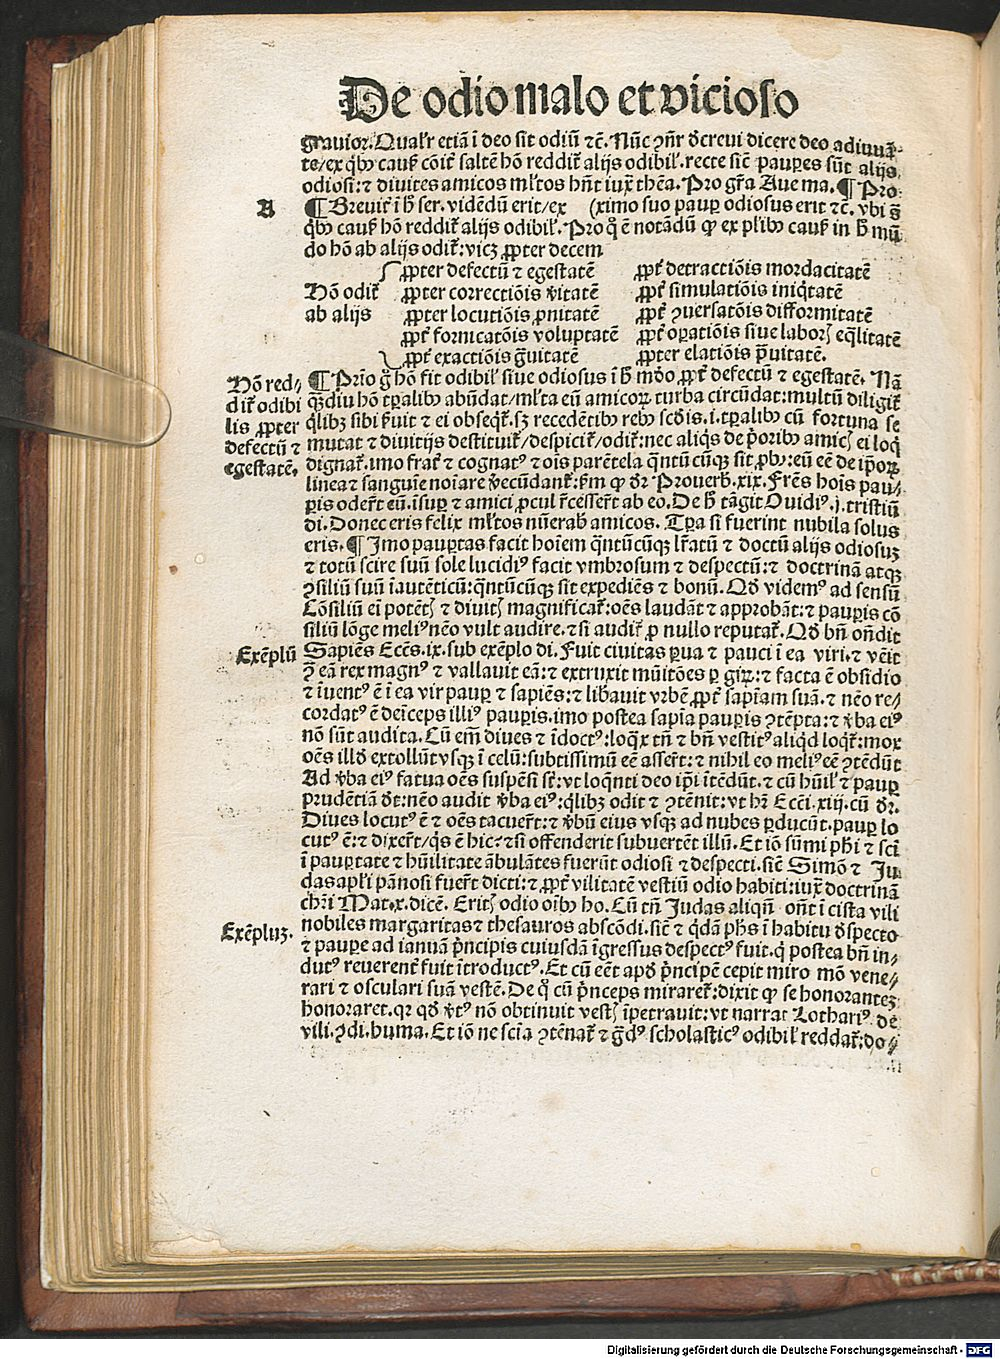 De odio malo et vicioso
grauior. Qualr̄ etiā ī deo sit odiū ⁊c̄. Nūc ꝯñr decreui dicere deo adiuuā-
te/ex qͥbꝰ causꝭ cōit̄ saltē hō reddit̄ alijs odibil̓. recte sicē paupes sūt alijs
odiosi: ⁊ diuites amicos ml̓tos hn̄t iuxͭ thēa. Pro grā Aue ma. ¶ Pro-
A
¶ Breuit̄ ī h̄ ser. vidēdū erit/ex (ximo suo paup odiosus erit ⁊c̄. vbi g̊
qͥbꝰ causꝭ hō reddit̄ alijs odibil̓. Pro qͦ ē notādū ꝙ ex pl̓ibꝰ causꝭ in h̄ mū-
do hō ab alijs odit̄: vicꝫ ꝓpter decem
Hō odit̄
ab alijs
ꝓpter defectū ⁊ egestatē
ꝓpter correctiōis v̓itatē
ꝓpter locutiōis ꝓnitatē
ꝓpt̄ fornicatōis voluptatē
ꝓpt̄ exactiōis g̓uitatē
ꝓpt̄ detractiōis mordacitatē
ꝓpt̄ simulatiōis iniqͥtatē
ꝓpt̄ ꝯuersatōis difformitatē
ꝓpt̄ oꝑatiōis siue laborꝭ eq̓litatē
ꝓpter elatiōis p̓uitatē.
Hō red-
dit̄ odibi
lis ꝓpter
defectū ⁊
egestatē.
¶ Prīo g̊ hō fit odibil̓ siue odiosus ī h̄ mōo ꝓpt̄ defectū ⁊ egestatē. Nā
qͣdiu hō tꝑalibꝰ abūdat/ml̓ta eū amicoꝝ turba circūdat: multū diligit̄
qͥlibꝫ sibi ẜuit ⁊ ei obseqͥt̄. sꝫ recedētibꝰ rebꝰ scd̓is .i. tꝑalibꝰ cū fortuna se
mutat ⁊ diuitijs destituit̄/despicit̄/odit̄: nec aliqͥs de p̓oribꝰ amicꝭ ei loqͥ
dignat̄. imo frat̄ ⁊ cognatꝰ ⁊ oīs parētela qͣntūcūqꝫ sit ꝓbꝰ: eū eē de ip̄oꝝ
linea ⁊ sanguīe noīare v̓ecūdant̄: ẜm ꝙ dr̄ Prouerb. xix. Fr̄es hoīs pau-
ꝑis oder̄t eū. īsuꝑ ⁊ amici ꝓcul r̓cesser̄t ab eo. De h̄ tāgit Ouidiꝰ .j. tristiū
di. Donec eris felix ml̓tos nūerabꝭ amicos. Tꝑa si fuerint nubila solus
eris. ¶ Imo pauꝑtas facit hoīem qͣntūcūqꝫ lr̄atū ⁊ doctū alijs odiosuꝫ
⁊ totū scire suū sole lucidiꝰ facit vmbrosum ⁊ despectū: ⁊ doctrinā atqꝫ
ꝯsiliū suū īautēticū: qͣntūcūqꝫ sit expediēs ⁊ bonū. Qd̓ videmꝰ ad sensū
Cōsiliū eī potētꝭ ⁊ diuitꝭ magnificat̄: oēs laudāt ⁊ approbāt: ⁊ pauꝑis cō
siliū lōge meliꝰ nēo vult audire. ⁊ si audit̄ ꝓ nullo reputat̄. Qd̓ bn̄ on̄dit
Exēplū
Sapiēs Eccēs. ix. sub exēplo di. Fuit ciuitas ꝑua ⁊ pauci ī ea viri. ⁊ vēit
ꝯ̄ eā rex magnꝰ ⁊ vallauit eā: ⁊ extruxit mūitōes ꝑ girꝝ: ⁊ facta ē obsidio
⁊ īuentꝰ ē ī ea vir pauꝑ ⁊ sapiēs: ⁊ lib̓auit vrbē ꝓpt̄ sapīam suā. ⁊ nēo re-
cordatꝰ ē deīceps illiꝰ pauꝑis. imo postea sapīa pauꝑis ꝯtēpta: ⁊ v̓ba eiꝰ
nō sūt audita. Cū em̄ diues ⁊ īdoctꝰ: loqͥx tn̄ ⁊ bn̄ vestitꝰ aliqͥd loqͥt̄: mox
oēs illd̓ extollūt vsqꝫ ī celū: subtissimū eē asser̄t: ⁊ nihil eo meliꝰ eē ꝯtēdūt
Ad v̓ba eiꝰ fatua oēs suspēsi st̄: vt loqͣnti deo ip̄i ītēdūt. ⁊ cū hūil̓ ⁊ pauꝑ
prudētiā d̓t: nēo audit v̓ba eiꝰ: qͥlibꝫ odit ⁊ ꝯtēnit: vt hr̄ Eccī. xiij. cū dr̄.
Diues locutꝰ ē ⁊ oēs tacuer̄t: ⁊ v̓bū eius vsqꝫ ad nubes ꝑducūt. pauꝑ lo
cutꝰ ē: ⁊ dixer̄t/qͥs ē hic? ⁊ si offenderit subuertēt illū. Et iō sūmi phī ⁊ scī
ī pauꝑtate ⁊ hūilitate ābulātes fuerūt odiosi ⁊ despecti. sicē Simō ⁊ Ju-
das apl̓i pānosi fuer̄t dicti: ⁊ ꝓpt̄ vilitatē vestiū odio habiti: iuxͭ doctrinā
chr̄i Mat. x. dicē. Eritꝭ odio oībꝰ ho. Cū tn̄ Judas aliqn̄ on̄t ī cista vili
Exēpluꝫ.
nobiles margaritas ⁊ thesauros abscōdi. sicē ⁊ qͥdā phūs ī habitu d̓specto
⁊ pauꝑe ad ianuā p̓ncipis cuiusdā īgressus despectꝰ fuit. qͥ postea bn̄ in-
dutꝰ reuerent̄ fuit ītroductꝰ. Et cū eēt apd̓ p̓ncipē cepit miro mō vene-
rari ⁊ osculari suā vestē. De qͦ cū p̓nceps miraret̄: dixit ꝙ se honoranteꝫ
honoraret. qꝛ qd̓ v̓tꝰ nō obtinuit vestꝭ īpetrauit: vt narrat Lothariꝰ de
vili. ꝯdi. huma. Et iō ne scīa ꝯtēnat̄ ⁊ g̓dꝰ scholasticꝰ odibil̓ reddat̄: do-
Digitalisierung gefördert durch die Deutsche Forschungsgemeinschaft - DFG